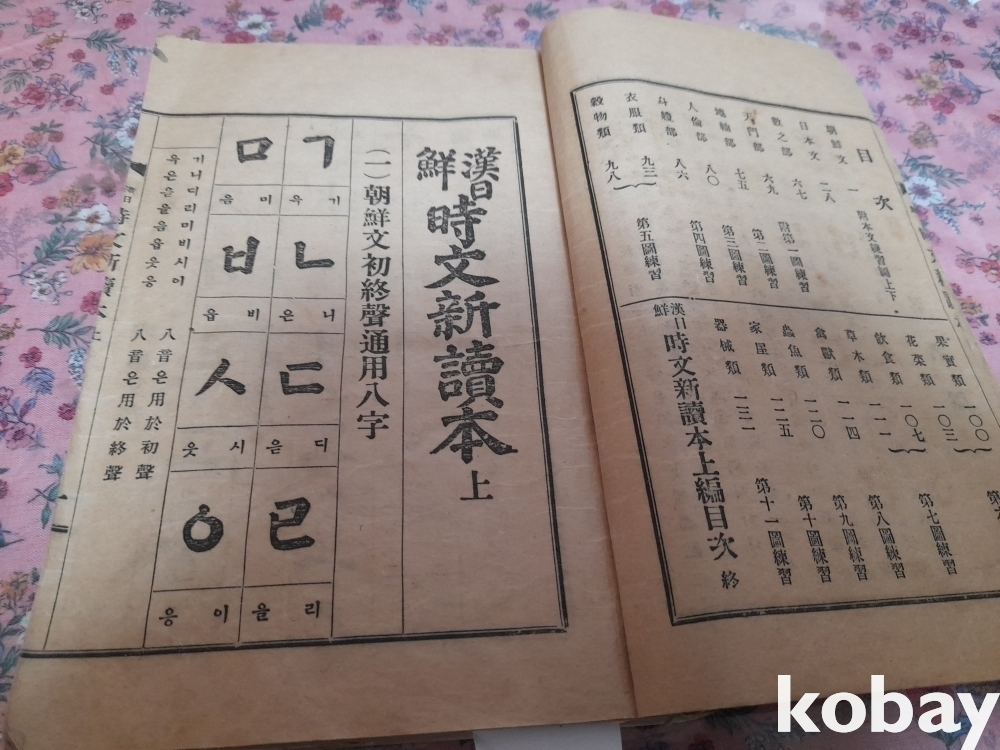 目次
朝鮮文 一 附本文練習圖上下
日本文 二八
數之部 六七 附第一圖練習
天門部 六九 第二圖練習
七五 第三圖練習
人倫部 八〇 第四圖練習
八六
衣服類 九三
穀物類 九八 第五圖練習
果實類 一〇〇
花菜類 一〇三
飲食類 一〇七 第七圖練習
草木類 一一一 第八圖練習
禽獸類 一一四 第九圖練習
蟲魚類 一二〇 第十圖練習
家屋類 一二五 第十一圖練習
器械類 一三一
漢日鮮時文新讀本上編目次 終
漢日鮮時文新讀本 上
(一)朝鮮文初終聲通用八字
ㄱ ㄴ ㄷ ㄹ
기 윽 니 은 디 읃 리 을
ㅁ ㅂ ㅅ ㆁ
미 음 비 읍 시 읏 이 응
기니디리미비시이 八音은用於初聲
윽은읃을음읍읏응 八音은用於終聲
kobay